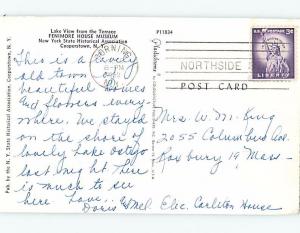 Lake View from the Terrace
FENIMORE HOUSE MUSEUM
New York State Historical Association
Cooperstown, N. Y.
P11834
CORNING
PM
NORTHSIDE
3¢
LIBERTY
POST CARD
This is a lovely
old town
beautiful homes
and flowers every-
where. We stayed
on the shore of
lovely Lake Ostego
last night. There
is much to see
here Love..
Doris & Mel
Mrs. W. M. King
2055 Columbus Ave
Roxbury 19 Mass-
Elec. Carleton House
Pub. by the N. Y. State Historical Association, Cooperstown, N. Y.